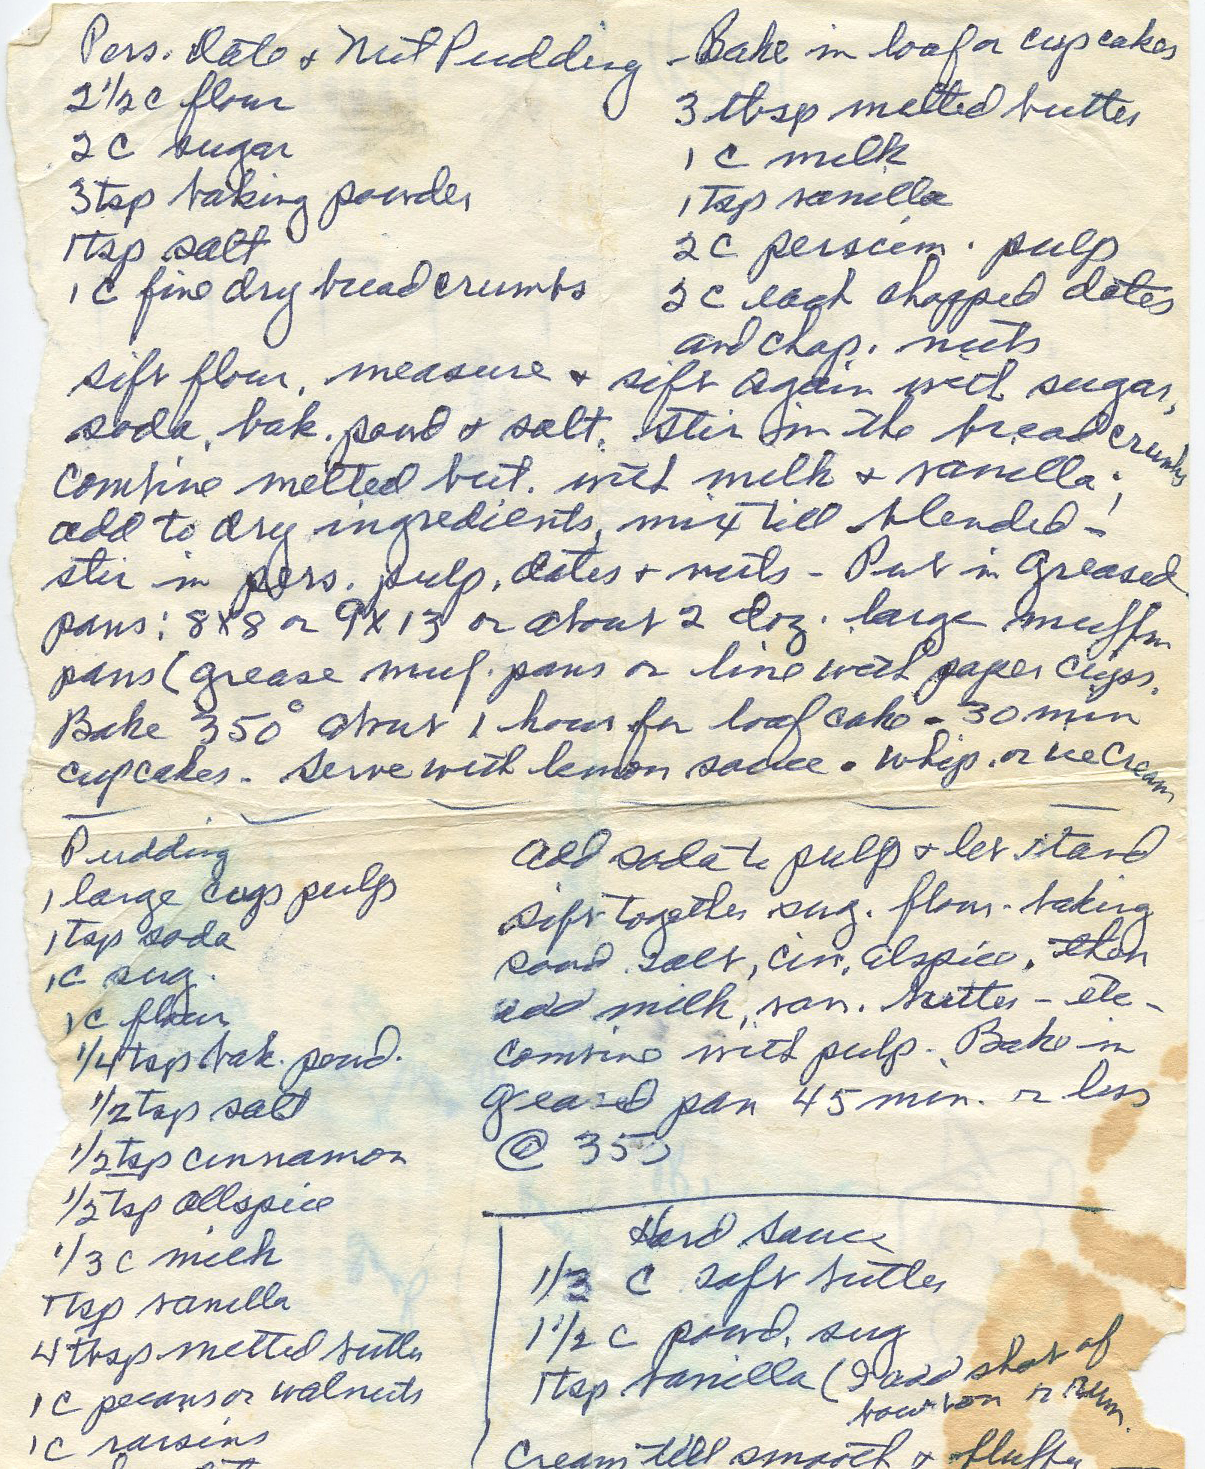 Pers. Date & Nut Pudding - Bake in loaf or cupcakes
2 1/2 c flour
2 C sugar
3 tsp baking powder
1 tsp salt
1 C fine dry bread crumbs
3 tbsp melted butter
1 C milk
1 tsp vanilla
2 C perscim. pulp
2 C each chopped dates
and chop. nuts
sift flour, measure & sift again with sugar,
soda, bak. powd & salt. Stir in the bread crumbs
Combine melted but. with milk & vanilla;
add to dry ingredients, mix till blended -
stir in pers. pulp, dates & nuts - Put in greased
pans: 8x8 or 9x13 or about 2 doz. large muffin
pans (grease muf. pans or line with paper cups.
Bake 350° about 1 hour for loaf cake - 30 min
cupcakes. Serve with lemon sauce. Whip. or ice cream
Pudding
1 large cups pulp
1 tsp soda
1 C sug.
1 C flour
1/4 tsp bak. powd.
1/2 tsp salt
1/2 tsp cinnamon
1/2 tsp allspice
1/3 c milk
1 tsp vanilla
4 tbsp melted butter
1 C pecans or walnuts
1 C raisins
add soda to pulp & let stand
sift together sug. flour - baking
powd. salt, cin, alspice, then
add milk, van. butter - etc -
combine with pulp. Bake in
greased pan 45 min. or less
@ 350
Hard Sauce
1/3 C soft butter
1 1/2 C powd. sug
1 tsp vanilla (I add shot of
bourbon or rum.
Cream till smooth & fluffy